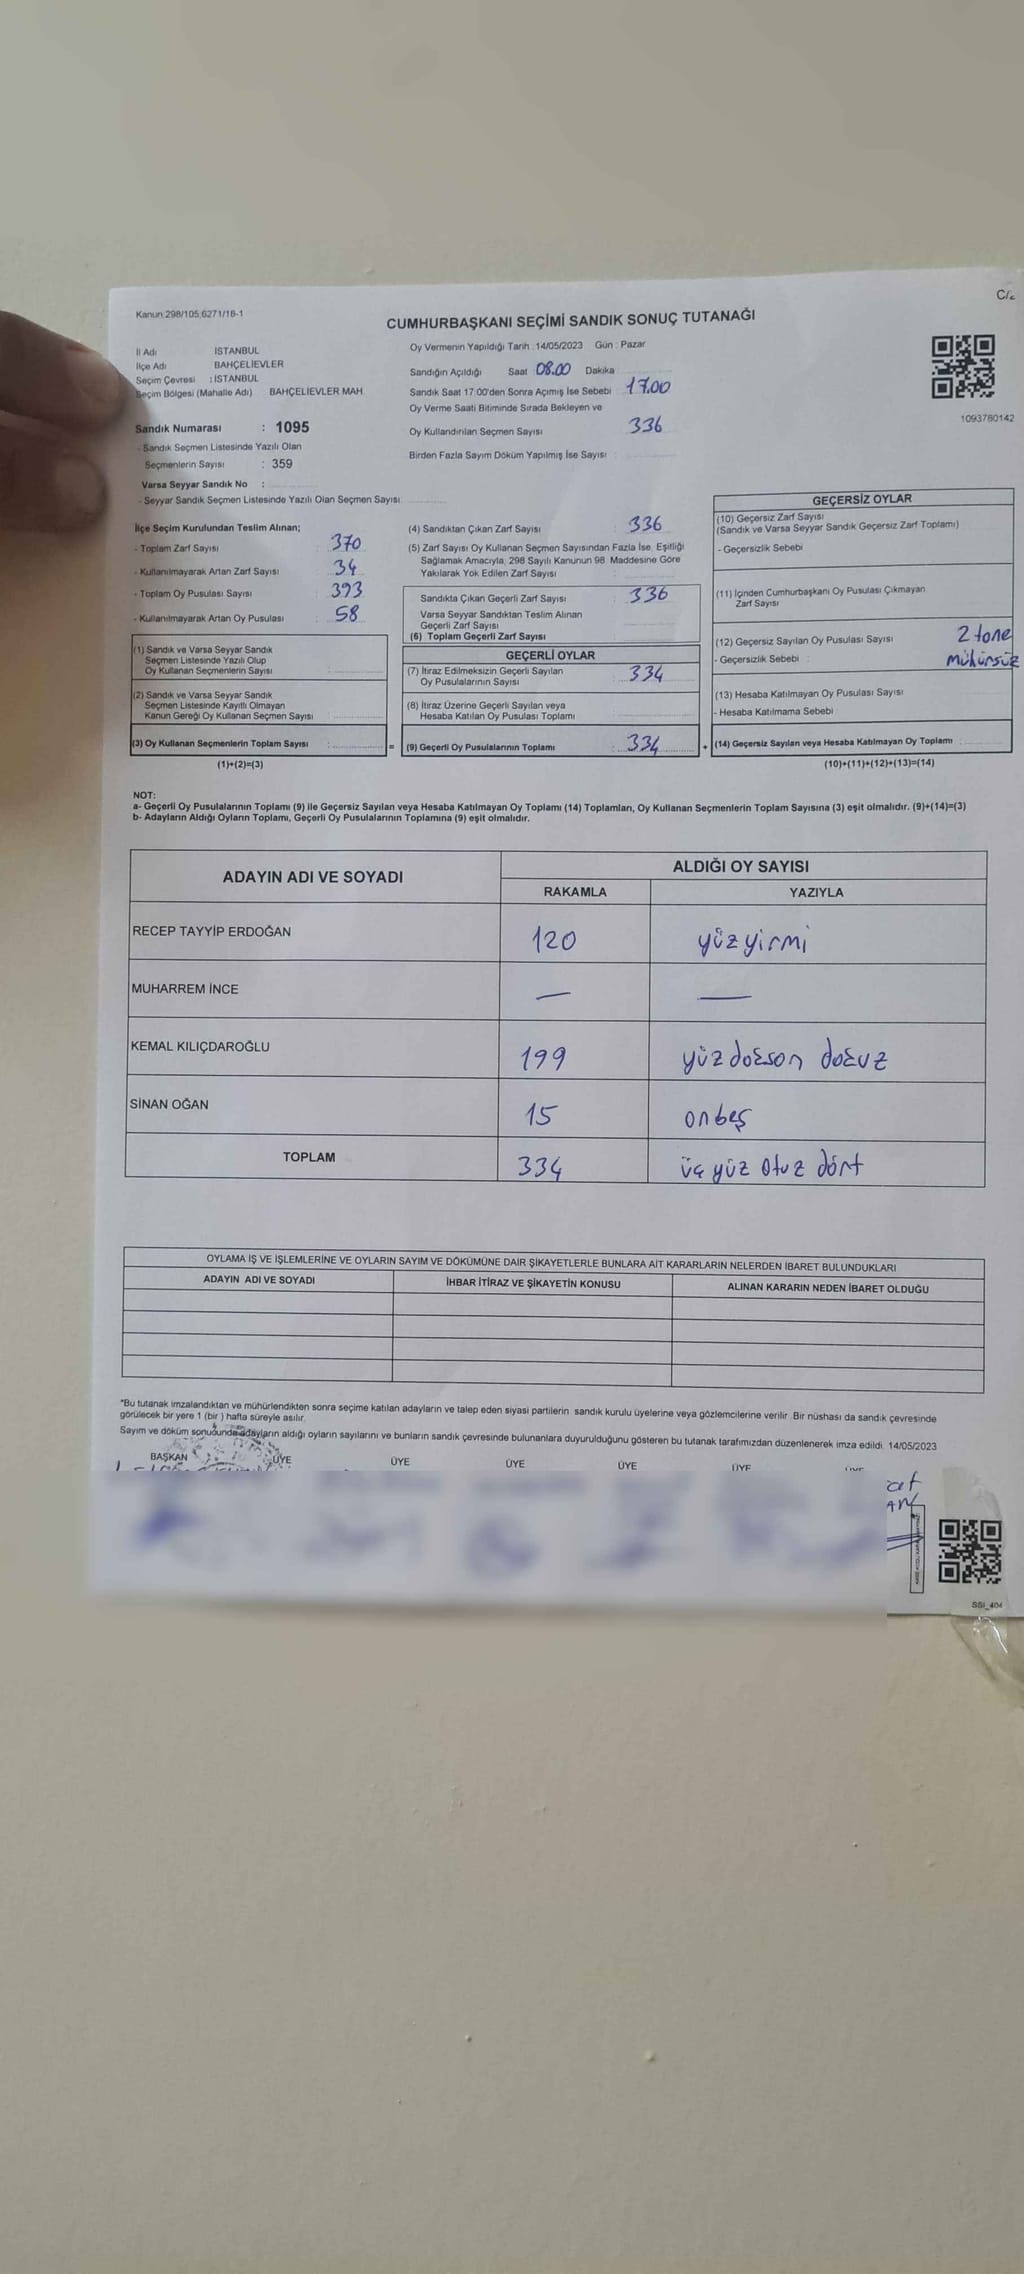 C/2
Kanun:298/105;6271/16-1
CUMHURBAŞKANI SEÇİMİ SANDIK SONUÇ TUTANAĞI
İl Adı İSTANBUL
İlçe Adı BAHÇELİEVLER
Seçim Çevresi : İSTANBUL
Seçim Bölgesi (Mahalle Adı) BAHÇELİEVLER MAH.
Sandık Numarası : 1095
- Sandık Seçmen Listesinde Yazılı Olan
Seçmenlerin Sayısı : 359
Varsa Seyyar Sandık No :
- Seyyar Sandık Seçmen Listesinde Yazılı Olan Seçmen Sayısı
Oy Vermenin Yapıldığı Tarih :14/05/2023 Gün : Pazar
Sandığın Açıldığı Saat 08.00 Dakika
Sandık Saat 17:00'den Sonra Açımış İse Sebebi 17.00
Oy Verme Saati Bitiminde Sırada Bekleyen ve
Oy Kullandırılan Seçmen Sayısı 336
Birden Fazla Sayım Döküm Yapılmış İse Sayısı :
1093780142
İlçe Seçim Kurulundan Teslim Alınan;
- Toplam Zarf Sayısı 370
- Kullanılmayarak Artan Zarf Sayısı 34
- Toplam Oy Pusulası Sayısı 393
- Kullanılmayarak Artan Oy Pusulası : 58
(1) Sandık ve Varsa Seyyar Sandık
Seçmen Listesinde Yazılı Olup
Oy Kullanan Seçmenlerin Sayısı
(2) Sandık ve Varsa Seyyar Sandık
Seçmen Listesinde Kayıtlı Olmayan
Kanun Gereği Oy Kullanan Seçmen Sayısı
(3) Oy Kullanan Seçmenlerin Toplam Sayısı :
(1)+(2)=(3)
(4) Sandıktan Çıkan Zarf Sayısı : 336
(5) Zarf Sayısı Oy Kullanan Seçmen Sayısından Fazla İse, Eşitliği
Sağlamak Amacıyla, 298 Sayılı Kanunun 98. Maddesine Göre
Yakılarak Yok Edilen Zarf Sayısı :
Sandıkta Çıkan Geçerli Zarf Sayısı : 336
Varsa Seyyar Sandıktan Teslim Alınan
Geçerli Zarf Sayısı
(6) Toplam Geçerli Zarf Sayısı
GEÇERLİ OYLAR
(7) İtiraz Edilmeksizin Geçerli Sayılan
Oy Pusulalarının Sayısı : 334
(8) İtiraz Üzerine Geçerli Sayılan veya
Hesaba Katılan Oy Pusulası Toplamı
= (9) Geçerli Oy Pusulalarının Toplamı : 334
GEÇERSİZ OYLAR
(10) Geçersiz Zarf Sayısı
(Sandık ve Varsa Seyyar Sandık Geçersiz Zarf Toplamı)
- Geçersizlik Sebebi
(11) İçinden Cumhurbaşkanı Oy Pusulası Çıkmayan
Zarf Sayısı
(12) Geçersiz Sayılan Oy Pusulası Sayısı 2 tane
- Geçersizlik Sebebi : mühürsüz
(13) Hesaba Katılmayan Oy Pusulası Sayısı
- Hesaba Katılmama Sebebi
+ (14) Geçersiz Sayılan veya Hesaba Katılmayan Oy Toplamı :
(10)+(11)+(12)+(13)=(14)
NOT:
a- Geçerli Oy Pusulalarının Toplamı (9) ile Geçersiz Sayılan veya Hesaba Katılmayan Oy Toplamı (14) Toplamları, Oy Kullanan Seçmenlerin Toplam Sayısına (3) eşit olmalıdır. (9)+(14)=(3)
b- Adayların Aldığı Oyların Toplamı, Geçerli Oy Pusulalarının Toplamına (9) eşit olmalıdır.
ADAYIN ADI VE SOYADI ALDIĞI OY SAYISI
RAKAMLA YAZIYLA
RECEP TAYYİP ERDOĞAN 120 yüzyirmi
MUHARREM İNCE — —
KEMAL KILIÇDAROĞLU 199 yüzdoksan dokuz
SİNAN OĞAN 15 onbeş
TOPLAM 334 üç yüz otuz dört
OYLAMA İŞ VE İŞLEMLERİNE VE OYLARIN SAYIM VE DÖKÜMÜNE DAİR ŞİKAYETLERLE BUNLARA AİT KARARLARIN NELERDEN İBARET BULUNDUKLARI
ADAYIN ADI VE SOYADI İHBAR İTİRAZ VE ŞİKAYETİN KONUSU ALINAN KARARIN NEDEN İBARET OLDUĞU
*Bu tutanak imzalandıktan ve mühürlendikten sonra seçime katılan adayların ve talep eden siyasi partilerin sandık kurulu üyelerine veya gözlemcilerine verilir. Bir nüshası da sandık çevresinde
görülecek bir yere 1 (bir ) hafta süreyle asılır.
Sayım ve döküm sonucunda adayların aldığı oyların sayılarını ve bunların sandık çevresinde bulunanlara duyurulduğunu gösteren bu tutanak tarafımızdan düzenlenerek imza edildi. 14/05/2023
BAŞKAN ÜYE ÜYE ÜYE ÜYE ÜYE
SSI_404